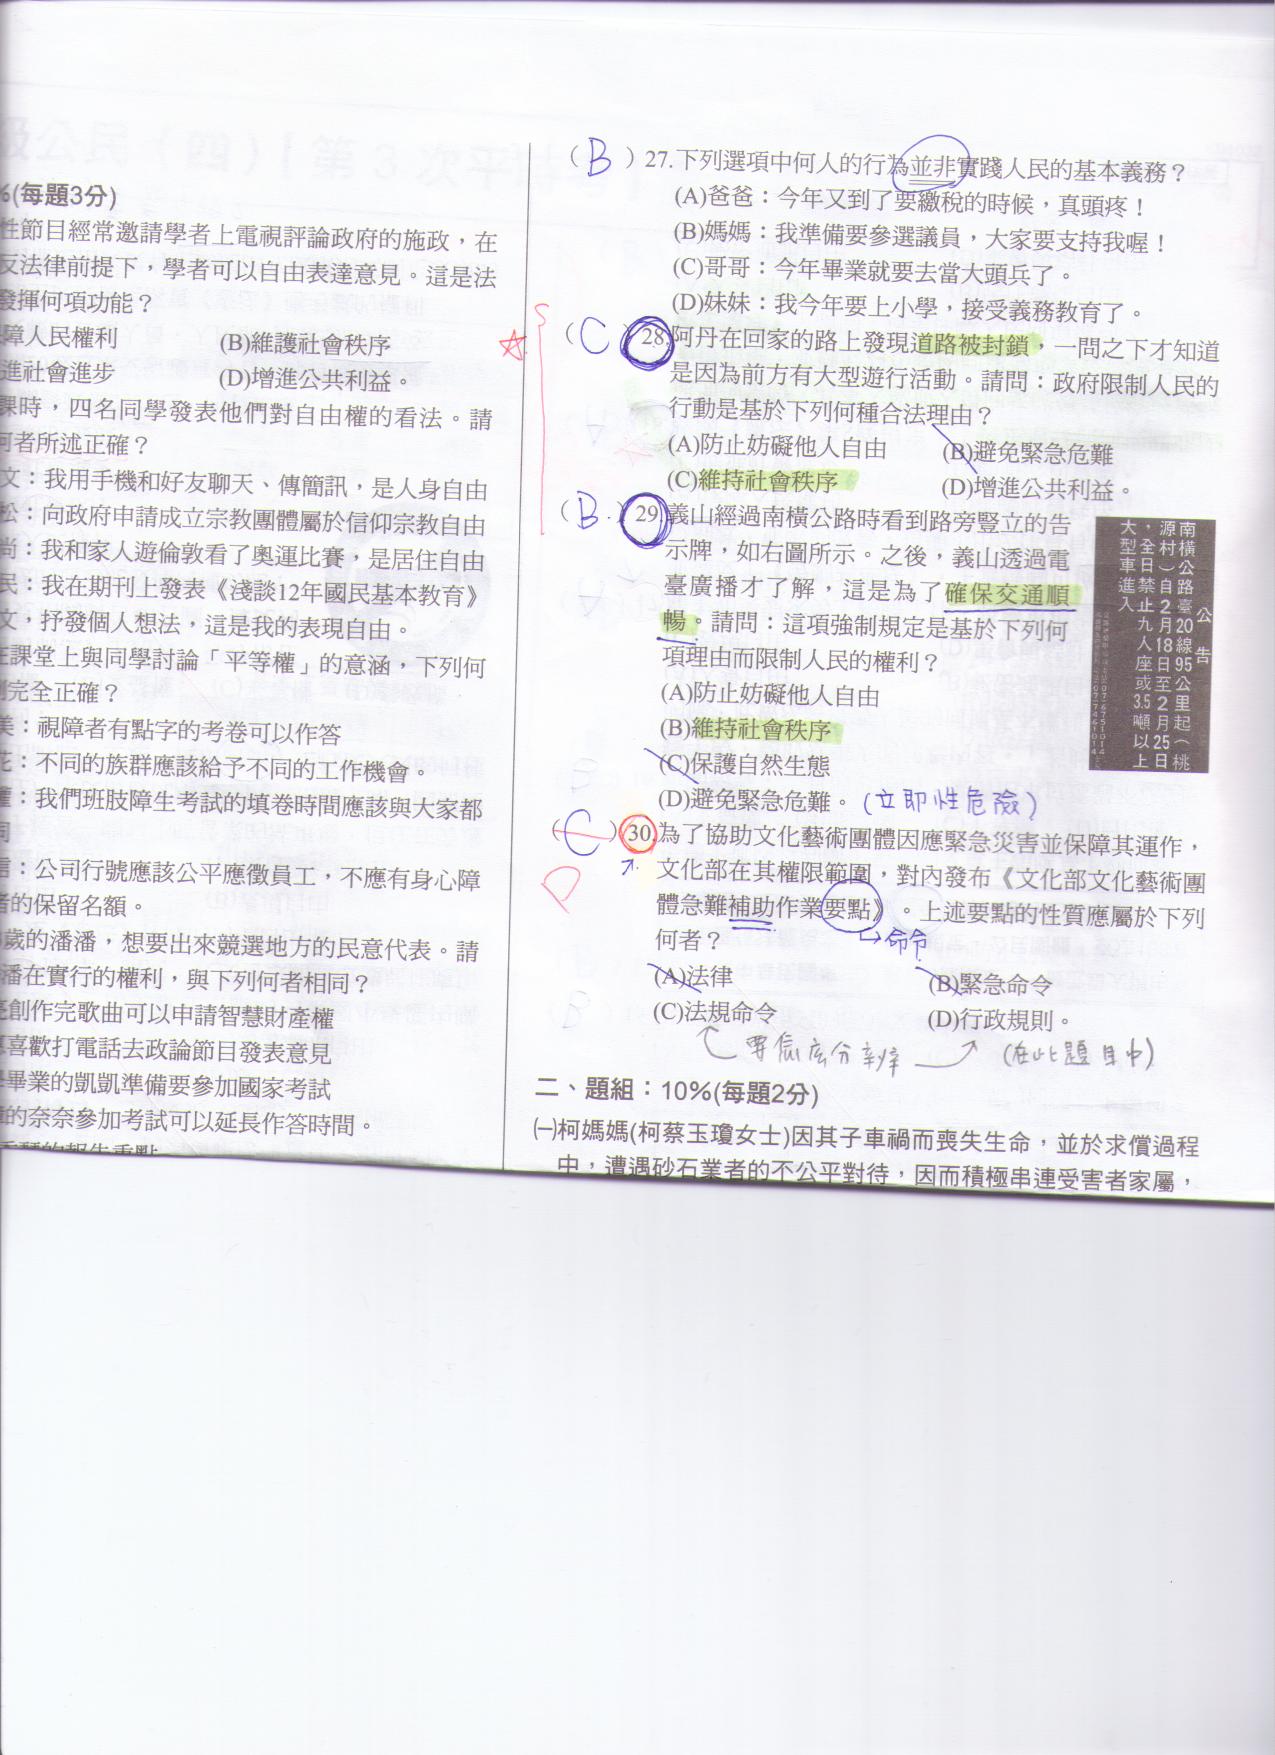 %(每題3分)
性節目經常邀請學者上電視評論政府的施政，在
反法律前提下，學者可以自由表達意見。這是法
發揮何項功能？
障人民權利 (B)維護社會秩序
進社會進步 (D)增進公共利益。
課時，四名同學發表他們對自由權的看法。請
何者所述正確？
文：我用手機和好友聊天、傳簡訊，是人身自由
松：向政府申請成立宗教團體屬於信仰宗教自由
尚：我和家人遊倫敦看了奧運比賽，是居住自由
民：我在期刊上發表《淺談12年國民基本教育》
文，抒發個人想法，這是我的表現自由。
在課堂上與同學討論「平等權」的意涵，下列何
完全正確？
美：視障者有點字的考卷可以作答
花：不同的族群應該給予不同的工作機會。
權：我們班肢障生考試的填卷時間應該與大家都
同
信：公司行號應該公平應徵員工，不應有身心障
者的保留名額。
歲的潘潘，想要出來競選地方的民意代表。請
潘在實行的權利，與下列何者相同？
亮創作完歌曲可以申請智慧財產權
喜歡打電話去政論節目發表意見
畢業的凱凱準備要參加國家考試
的奈奈參加考試可以延長作答時間。
( B ) 27.下列選項中何人的行為並非實踐人民的基本義務？
(A)爸爸：今年又到了要繳稅的時候，真頭疼！
(B)媽媽：我準備要參選議員，大家要支持我喔！
(C)哥哥：今年畢業就要去當大頭兵了。
(D)妹妹：我今年要上小學，接受義務教育了。
( C ) 28.阿丹在回家的路上發現道路被封鎖，一問之下才知道
是因為前方有大型遊行活動。請問：政府限制人民的
行動是基於下列何種合法理由？
(A)防止妨礙他人自由 (B)避免緊急危難
(C)維持社會秩序 (D)增進公共利益。
( B ) 29.義山經過南橫公路時看到路旁豎立的告
示牌，如右圖所示。之後，義山透過電
臺廣播才了解，這是為了確保交通順
暢。請問：這項強制規定是基於下列何
項理由而限制人民的權利？
(A)防止妨礙他人自由
(B)維持社會秩序
(C)保護自然生態
(D)避免緊急危難。(立即性危險)
公告
南橫公路臺20線95公里起（桃
源村）自2月18日至2月25日
，全日禁止九人座或3.5噸以上
大型車進入
( C ) 30.為了協助文化藝術團體因應緊急災害並保障其運作，
D
文化部在其權限範圍，對內發布《文化部文化藝術團
體急難補助作業要點》。上述要點的性質應屬於下列
何者？ 命令
(A)法律 (B)緊急命令
(C)法規命令 (D)行政規則。
要徹底分辨 (在此題目中)
二、題組：10%(每題2分)
㈠柯媽媽(柯蔡玉瓊女士)因其子車禍而喪失生命，並於求償過程
中，遭遇砂石業者的不公平對待，因而積極串連受害者家屬，